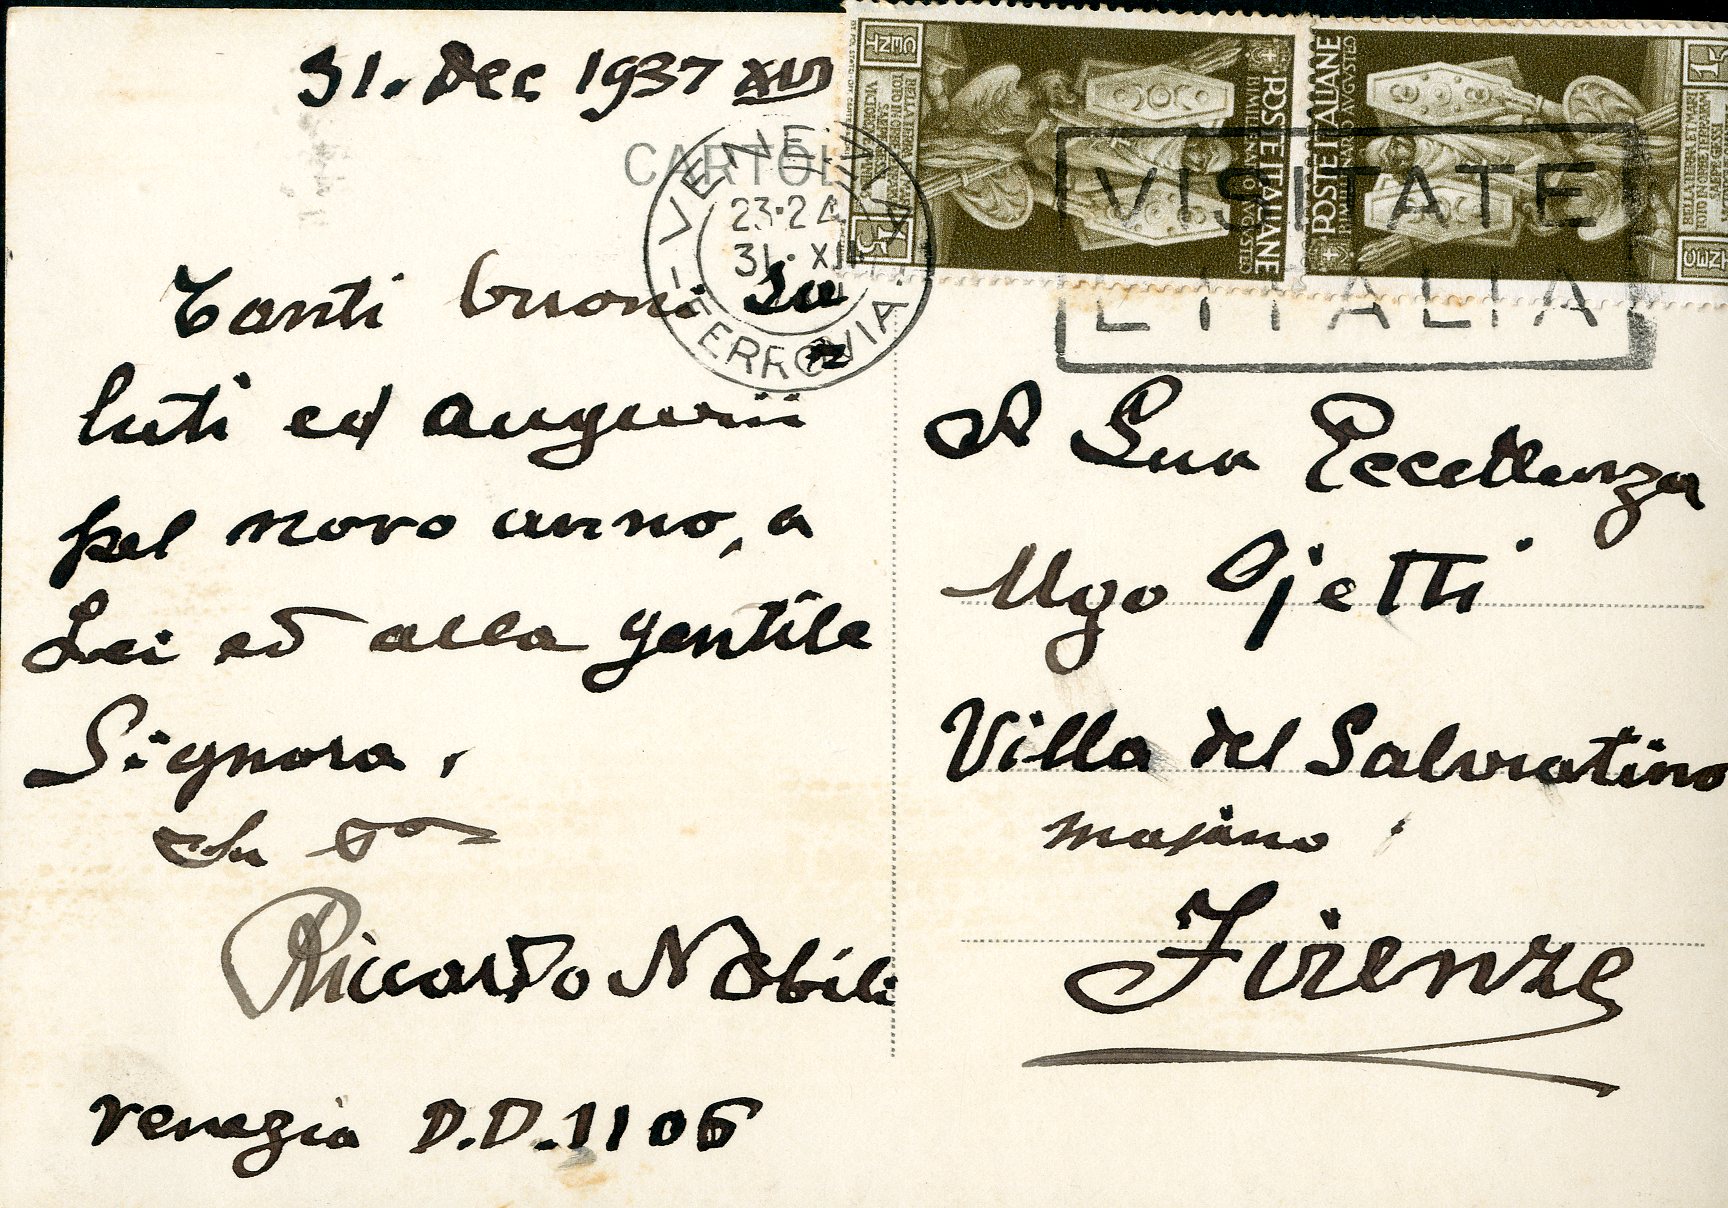 31. Dec 1937 XVI
CARTOL
VENEZIA
23-24
31·XI
FERROVIA
VISITATE
L'ITALIA
CENT
15
POSTE ITALIANE
BIMILLENARIO AVGVSTEO
POSTE ITALIANE
BIMILLENARIO AVGVSTEO
15
CENT
Tanti buoni Sa
luti ed augurii
pel novo anno, a
Lei ed alla gentile
Signora,
Riccardo Nobili
Venezia D.D. 1106
A Sua Eccellenza
Ugo Ojetti
Villa del Salviatino
Majano
Firenze